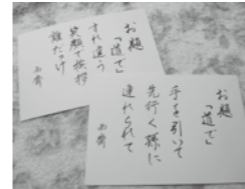 お題
「道で」
すれ違う
笑顔で挨拶
誰だっけ
お題
「道で」
手を引いて
先行く孫に
連れられて